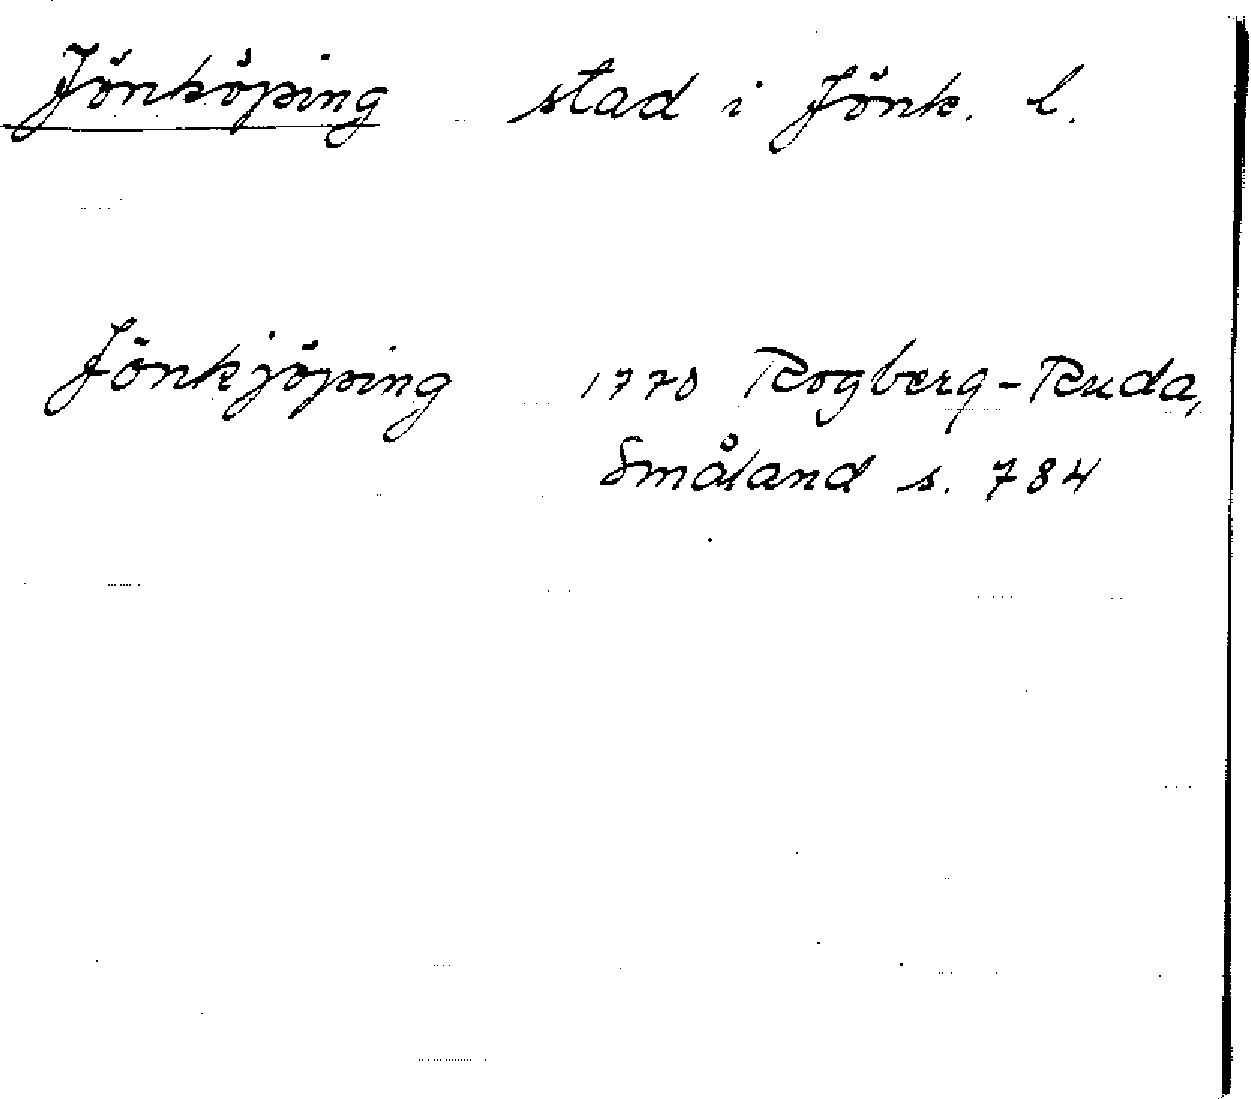 Jönköping stad i Jönk. l.
Jönkjöping 1770 Rogberg-Ruda,
Småland s. 784